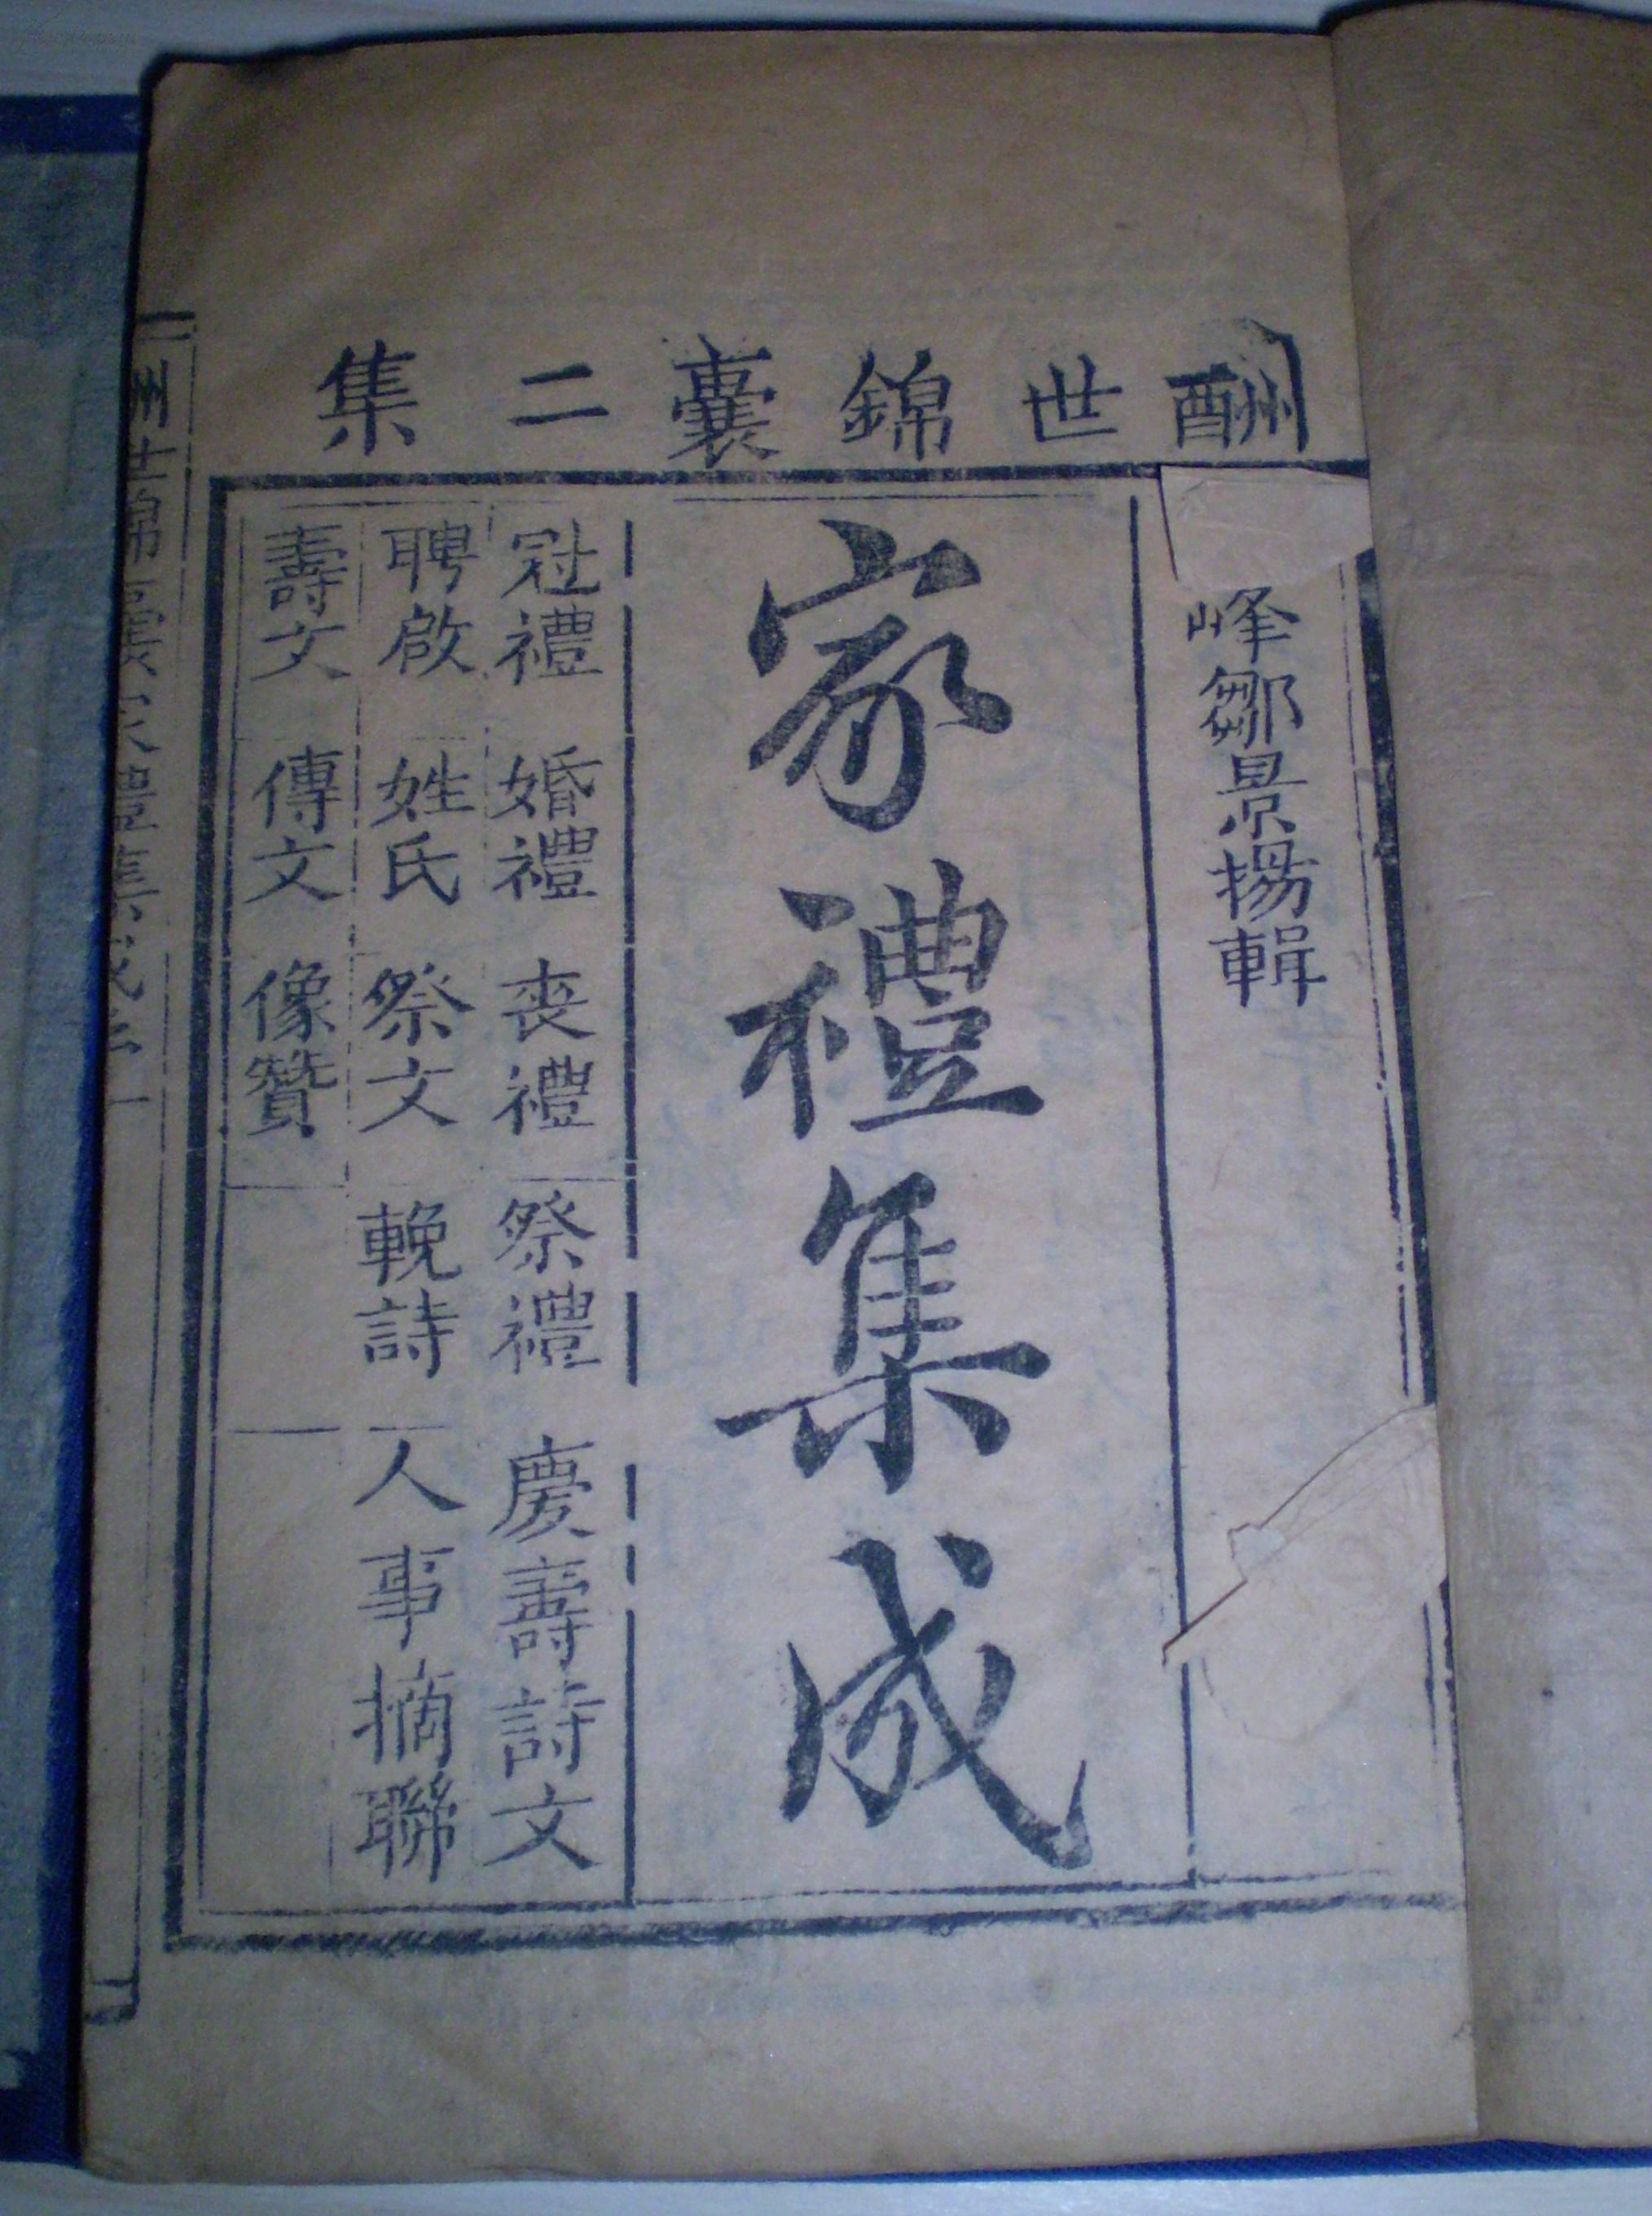 酬世錦囊二集
峰鄒景揚輯
家禮集成
冠禮 婚禮 喪禮 祭禮 慶壽詩文
聘啟 姓氏 祭文 輓詩 人事摘聯
壽文 傳文 像贊